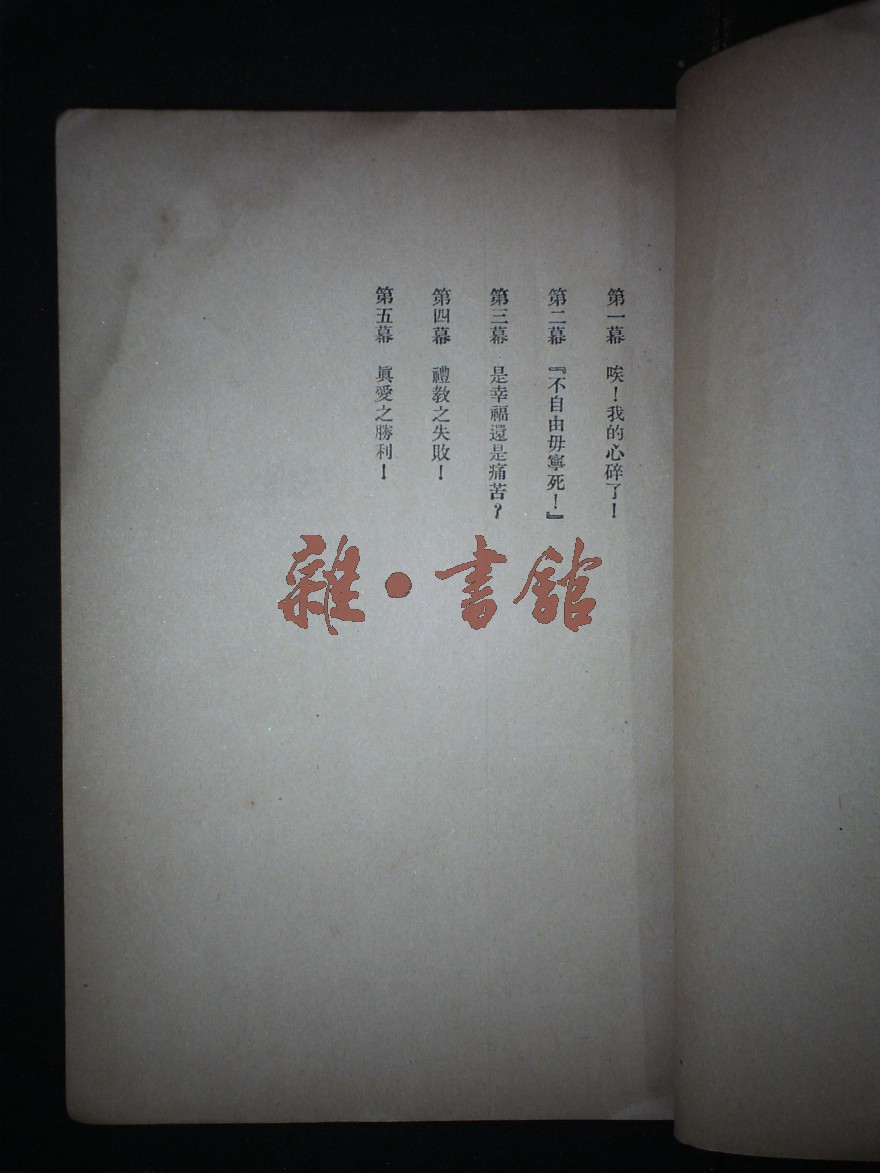 第一幕　唉！我的心碎了！
第二幕　『不自由毋寧死！』
第三幕　是幸福還是痛苦？
第四幕　禮教之失敗！
第五幕　眞愛之勝利！
雜・書館